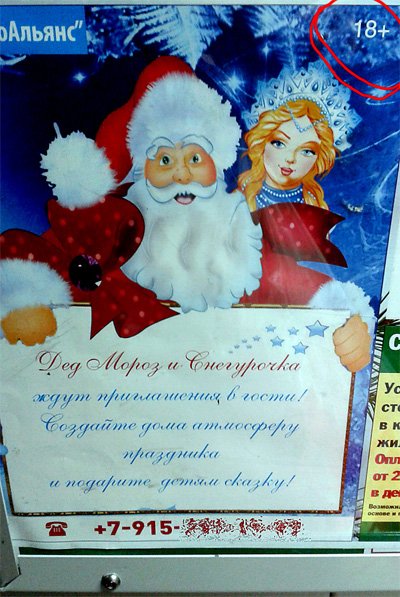 оАльянс"
18+
Дед Мороз и Снегурочка
ждут приглашения в гости!
Создайте дома атмосферу
праздника
и подарите детям сказку!
+7-915-
С
Ус
сто
в к
жи
Опл
от 2
в де
Возможна
основе и п